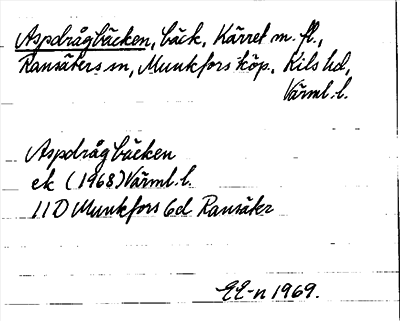 Aspdrågbäcken, bäck, Kärret m. fl.,
Ransäters sn, Munkfors köp. Kils hd,
Värml. l.
Aspdrågbäcken
ek (1968) Värml. l.
11D Munkfors 6d Ransäter
1969.